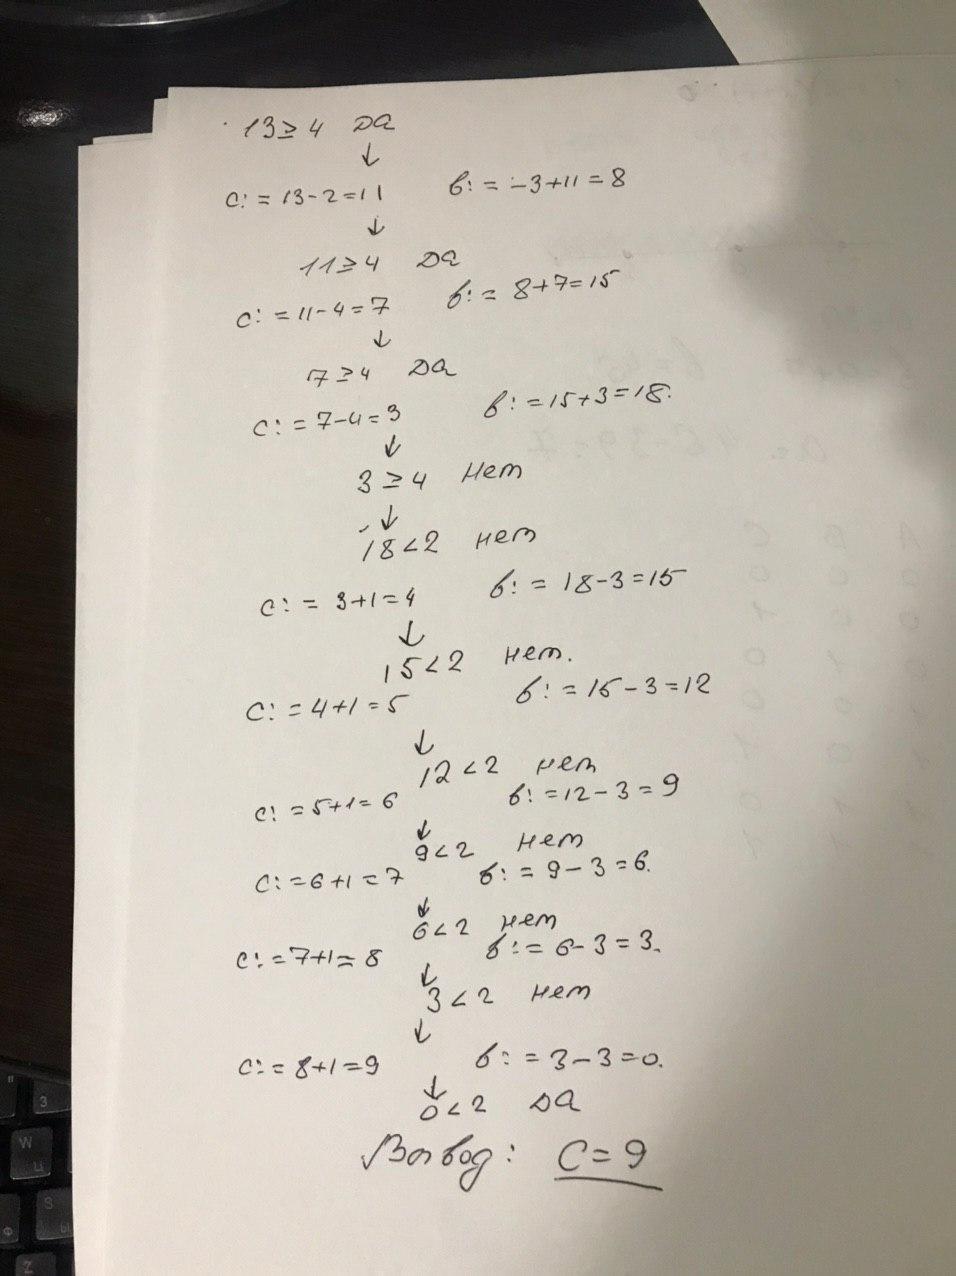 13≥4 Да
↓
c:=13-2=11 b:=-3+11=8
↓
11≥4 Да
c:=11-4=7 b:=8+7=15
↓
7≥4 Да
c:=7-4=3 b:=15+3=18.
↓
3≥4 Нет
↓
18<2 нет
c:=3+1=4 b:=18-3=15
↓
15<2 нет.
c:=4+1=5 b:=15-3=12
↓
12<2 нет
c:=5+1=6 b:=12-3=9
↓
9<2 Нет
c:=6+1=7 b:=9-3=6.
↓
6<2 нет
c:=7+1=8 b:=6-3=3.
↓
3<2 нет
↓
c:=8+1=9 b:=3-3=0.
↓
0<2 Да
Вывод: C=9
3
W
S
Ф
Ы
Z